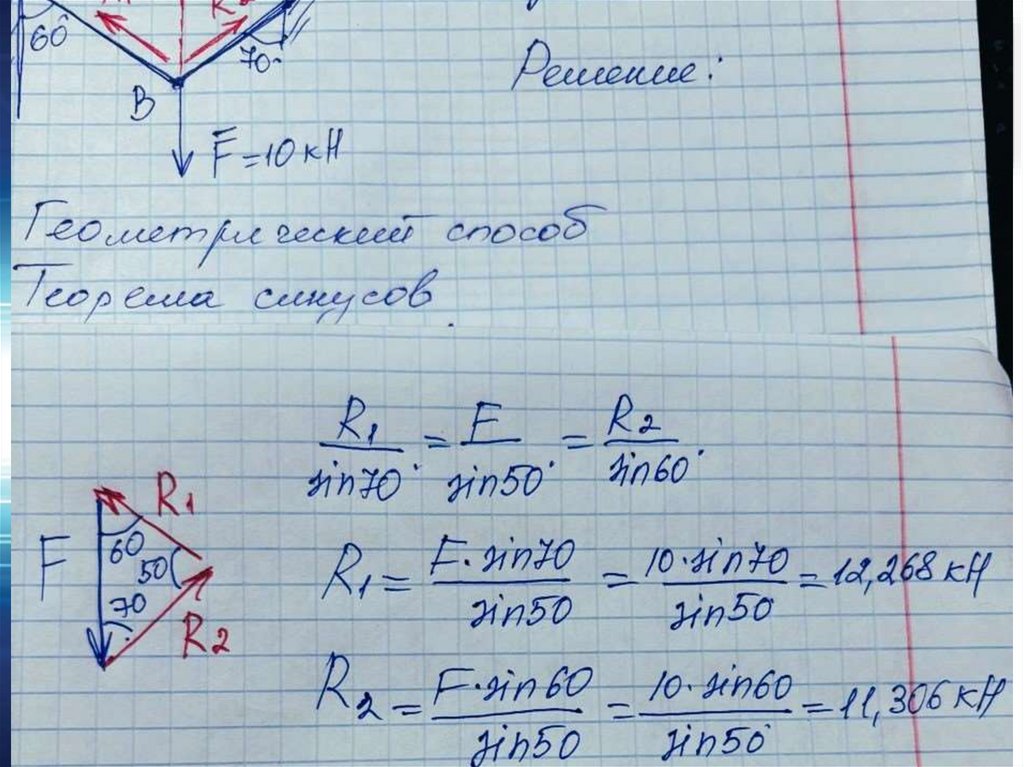 60°
70°
B
F=10кН
Решение:
Геометрический способ
Теорема синусов
R1/sin70° = F/sin50° = R2/sin60°
F
R1
60
50
70
R2
R1 = F·sin70/sin50 = 10·sin70/sin50 = 12,268кН
R2 = F·sin60/sin50 = 10·sin60/sin50° = 11,306кН